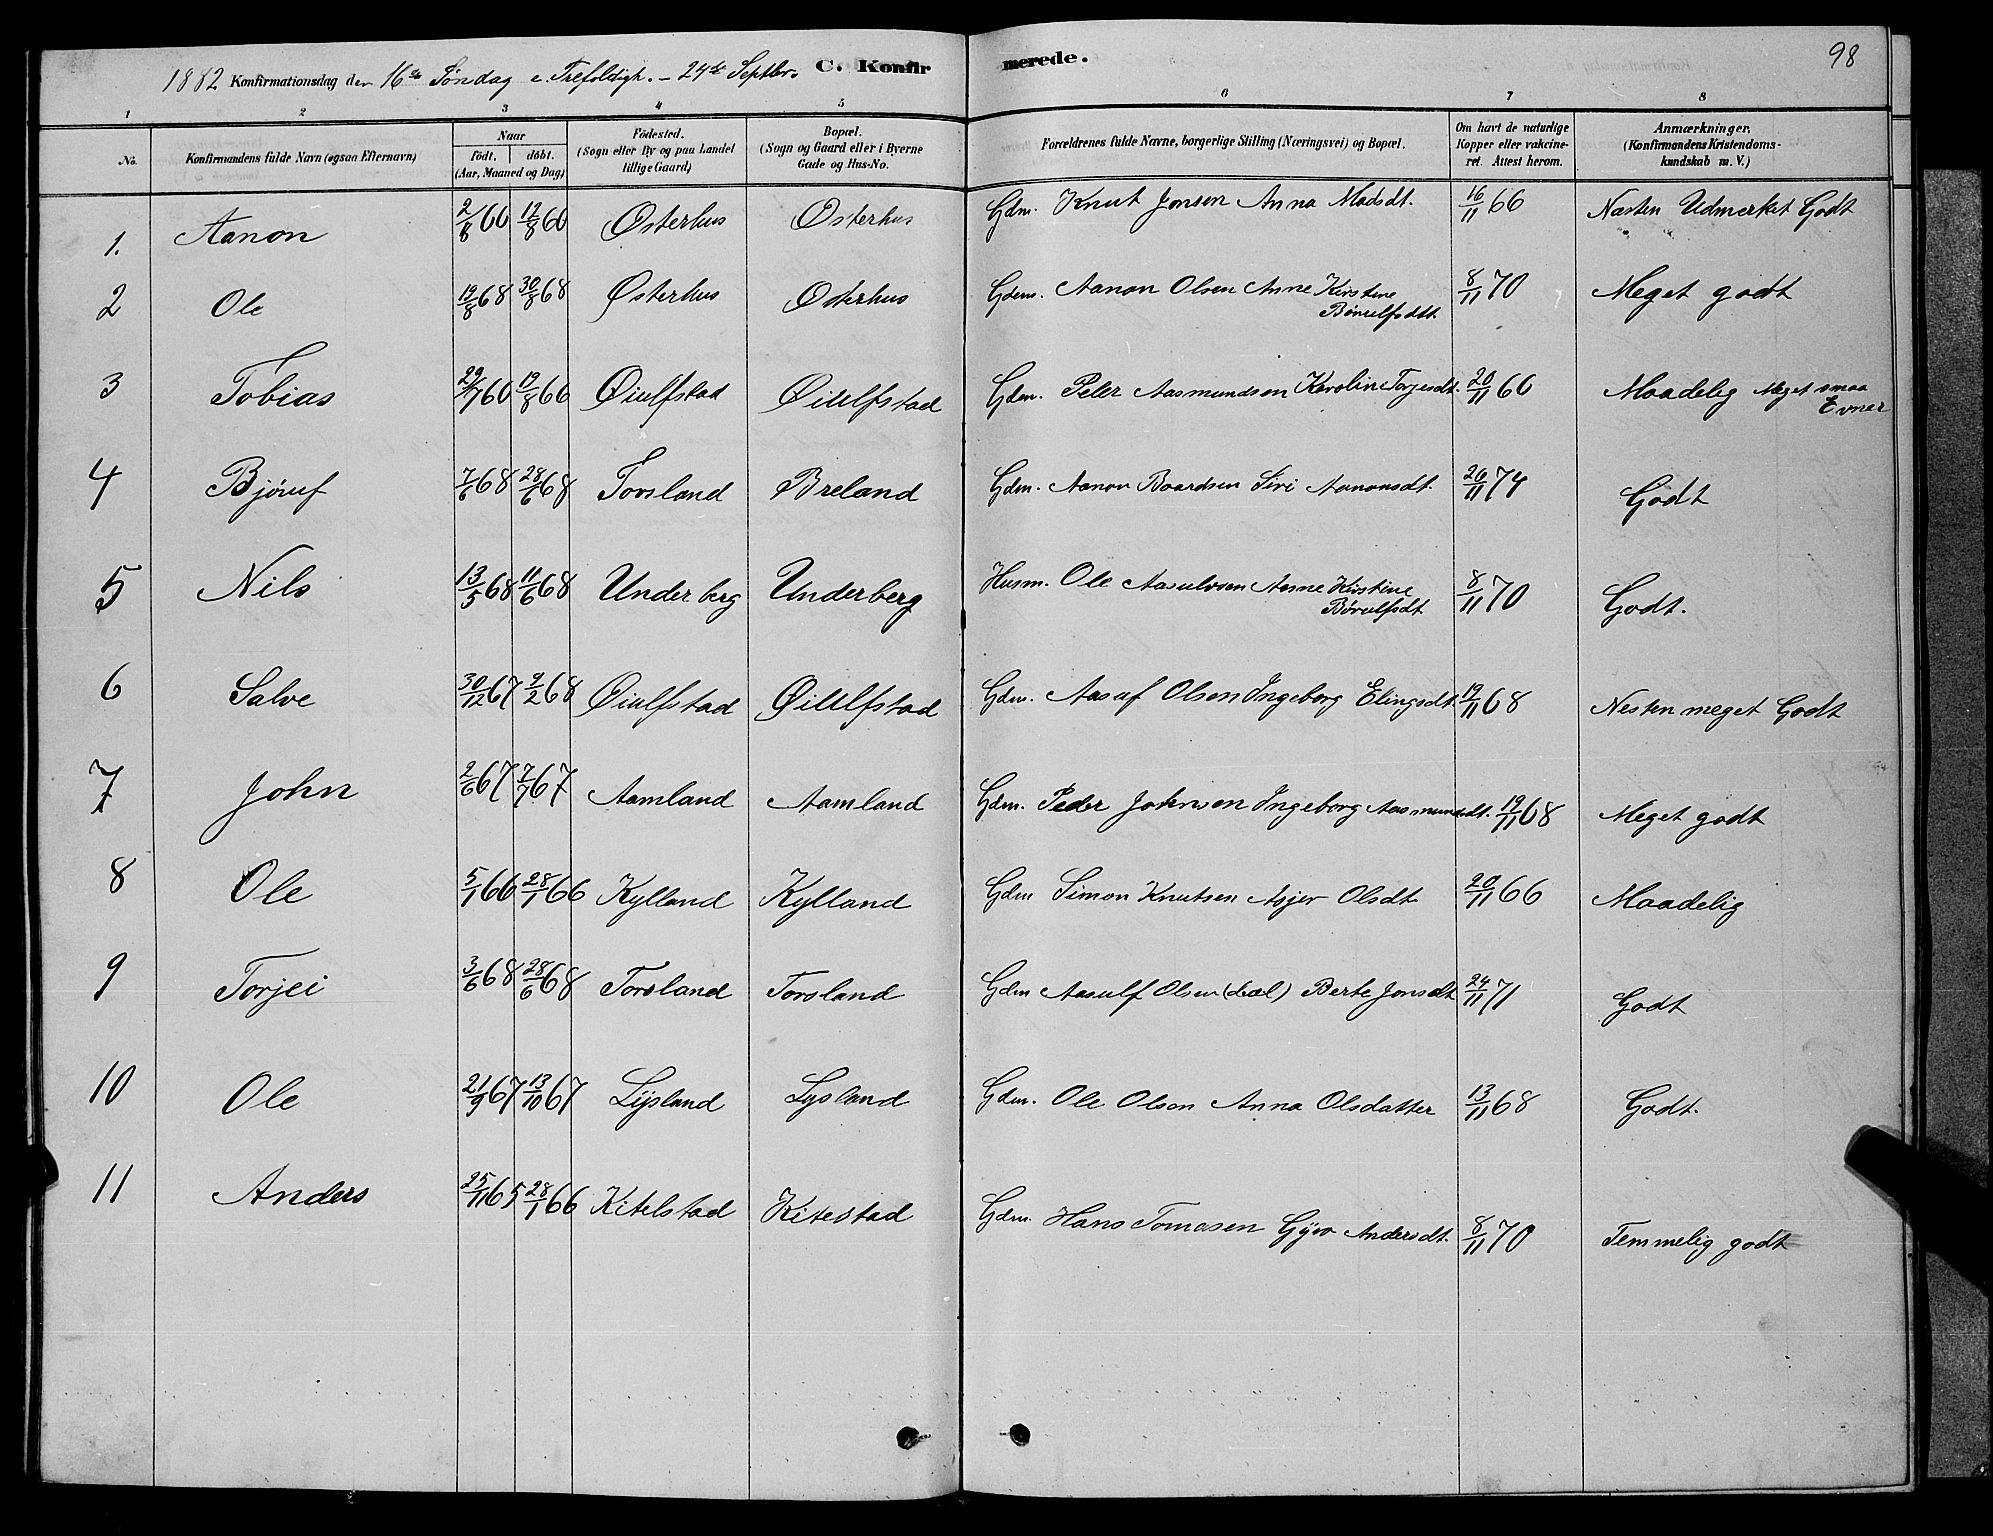 1882 Konfirmationsdag den 16de Søndag e. Trefoldigh. – 24de Septbr. C. Konfirmerede. 98
1 2 3 4 5 6 7 8
No. Konfirmandens fulde Navn (ogsaa Efternavn) Naar født. døbt. (Aar, Maaned og Dag) Fødested. (Sogn eller By og paa Landet tillige Gaard) Bopæl. (Sogn og Gaard eller i Byerne Gade og Hus-No. Forældrenes fulde Navne, borgerlige Stilling (Næringsvei) og Bopæl. Om havt de naturlige Kopper eller vakcineret. Attest herom. Anmærkninger. (Konfirmandens Kristendomskundskab m. V.)
1. Aanon 2/8 66 12/8 66 Østerhus Østerhus Gdm. Knut Jonsen Anna Madsdt. 16/11 66 Næsten Udmerket Godt
2 Ole 19/8 68 30/8 68 Østerhus Østerhus Gdm. Aanon Olsen Anne Kirstine 8/11 70 Meget godt
Børulfsdtt.
3 Tobias 29/7 66 19/8 66 Øiulfstad Øiulfstad Gdm. Peter Aasmundsen Karoline Torjesdt. 20/11 66 Maadelig Meget smaa
Evner
4 Bjøruf 7/6 68 28/6 68 Torsland Breland Gdm. Aanon Baardsen Siri Aanonsdt. 26/11 74 Godt
5 Nils 13/5 68 11/6 68 Underberg Underberg Husm. Ole Aasulvsen Aasne Kirstine 8/11 70 Godt.
Børulfsdt
6 Salve 30/12 67 9/2 68 Øiulfstad Øiulfstad Gdm. Aasuf Olsen Ingeborg Elingsdt. 19/11 68 Nesten meget Godt
7 John 2/6 67 7/7 67 Aamland Aamland Gdm. Peder Johnsen Ingeborg Aasmundsdt. 19/11 68 Meget godt
8 Ole 5/1 66 28/1 66 Kylland Kylland Gdm Simon Knutsen Asjer Olsdt 20/11 66 Maadelig
9 Torjei 3/6 68 28/6 68 Torsland Torsland Gdm Aasulf Olsen Berte Jonsdt 24/11 71 Godt
10 Ole 21/9 67 13/10 67 Lysland Lysland Gdm. Ole Olson Anna Olsdatter 13/11 68 Godt.
11 Anders 25/11 65 28/1 66 Kitelstad Kitestad Gdm. Hans Tomasen Gyro Andersdt. 8/11 70 Temmelig godt